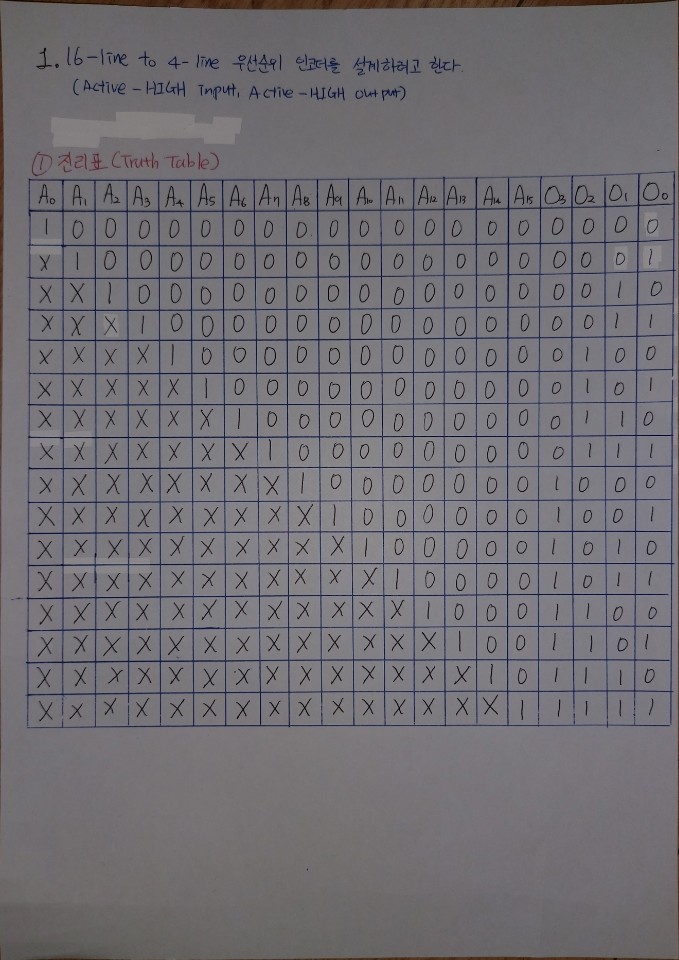 1. 16-line to 4-line 우선순위 인코더를 설계하려고 한다.
(Active-HIGH input, Active-HIGH output)
① 진리표 (Truth Table)
A0 A1 A2 A3 A4 A5 A6 A7 A8 A9 A10 A11 A12 A13 A14 A15 O3 O2 O1 O0
1 0 0 0 0 0 0 0 0 0 0 0 0 0 0 0 0 0 0 0
X 1 0 0 0 0 0 0 0 0 0 0 0 0 0 0 0 0 0 1
X X 1 0 0 0 0 0 0 0 0 0 0 0 0 0 0 0 1 0
X X X 1 0 0 0 0 0 0 0 0 0 0 0 0 0 0 1 1
X X X X 1 0 0 0 0 0 0 0 0 0 0 0 0 1 0 0
X X X X X 1 0 0 0 0 0 0 0 0 0 0 0 1 0 1
X X X X X X 1 0 0 0 0 0 0 0 0 0 0 1 1 0
X X X X X X X 1 0 0 0 0 0 0 0 0 0 1 1 1
X X X X X X X X 1 0 0 0 0 0 0 0 1 0 0 0
X X X X X X X X X 1 0 0 0 0 0 0 1 0 0 1
X X X X X X X X X X 1 0 0 0 0 0 1 0 1 0
X X X X X X X X X X X 1 0 0 0 0 1 0 1 1
X X X X X X X X X X X X 1 0 0 0 1 1 0 0
X X X X X X X X X X X X X 1 0 0 1 1 0 1
X X X X X X X X X X X X X X 1 0 1 1 1 0
X X X X X X X X X X X X X X X 1 1 1 1 1